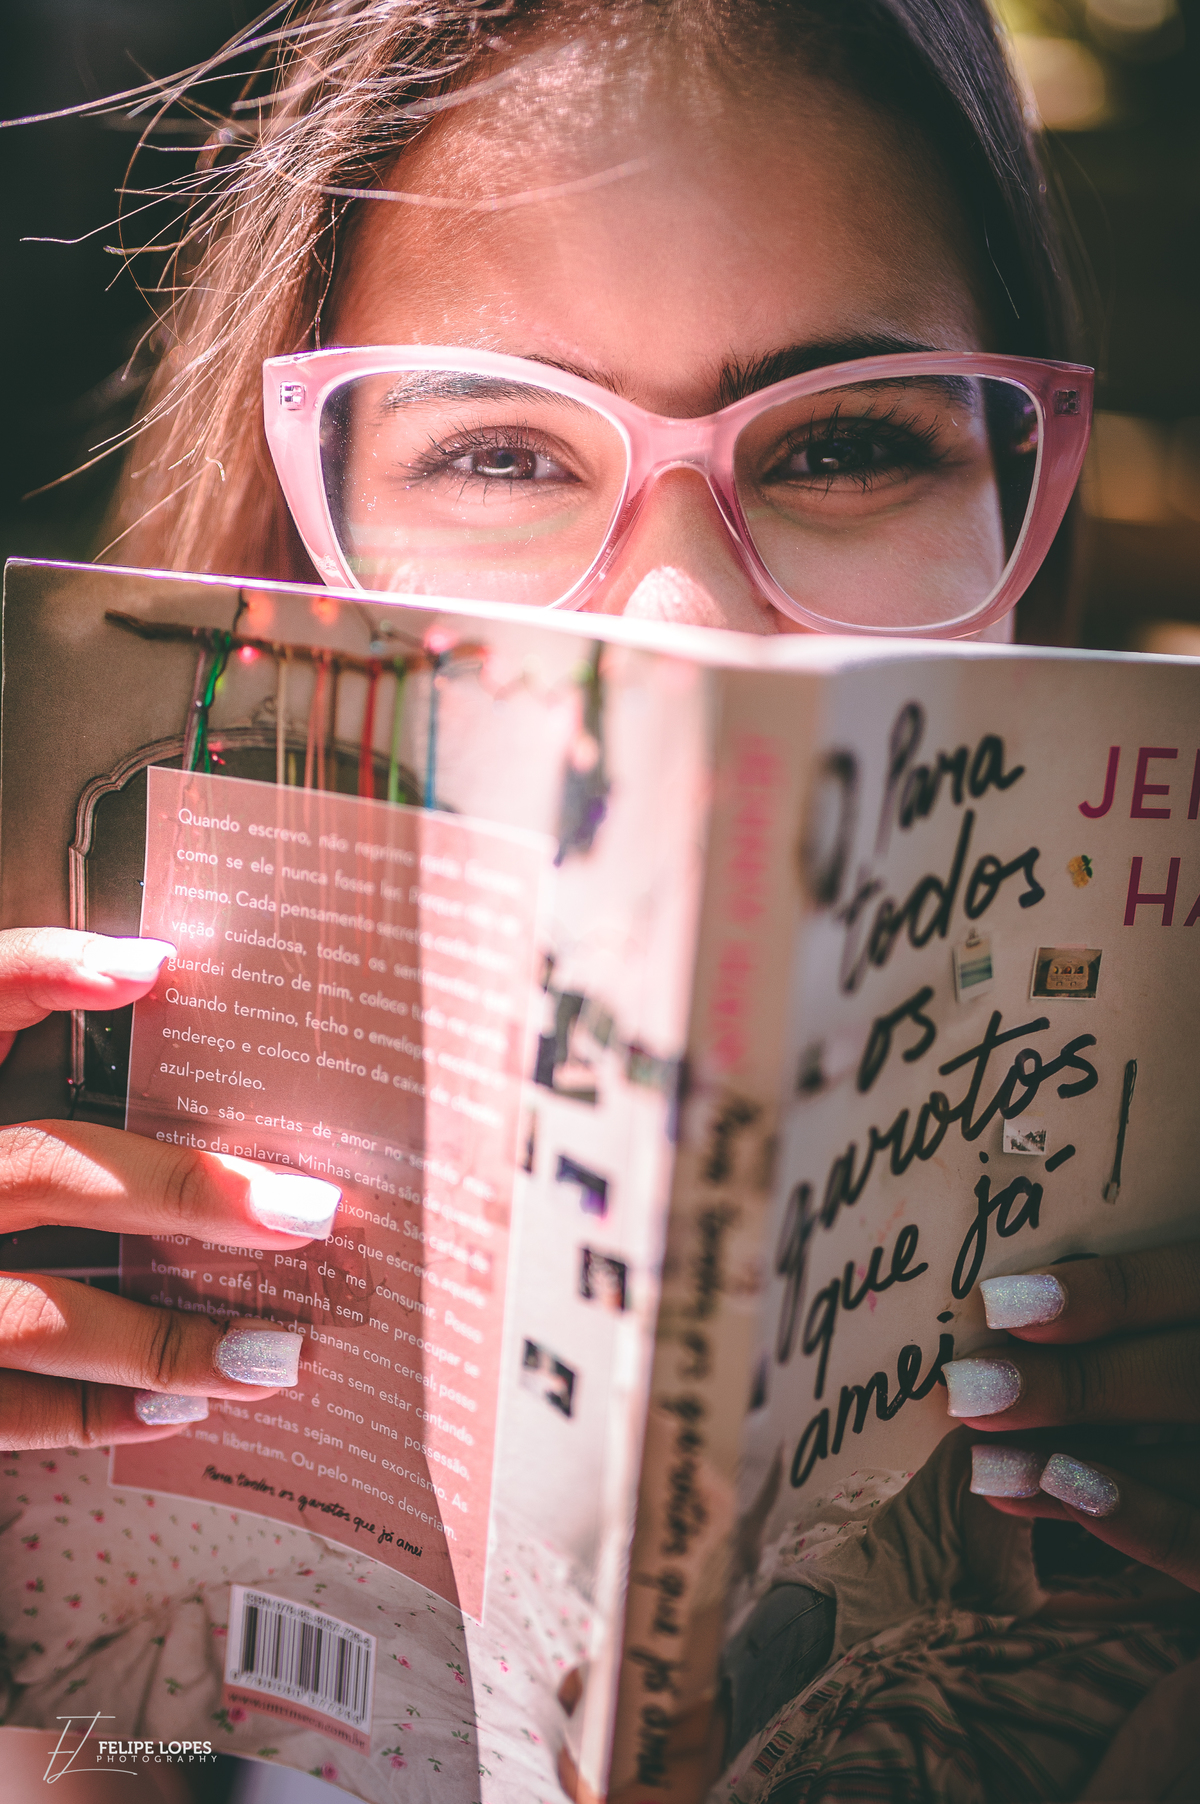 Quando escrevo, não reprimo nada. Escrevo
como se ele nunca fosse ler. Porque não vai
mesmo. Cada pensamento secreto,
vação cuidadosa, todos os
guardei dentro de mim, coloco tudo na carta.
Quando termino, fecho o envelope,
endereço e coloco dentro da caixa de chapéu
azul-petróleo.
Não são cartas de amor no sentido mais
estrito da palavra. Minhas cartas são de quando
aixonada. São cartas de
pois que escrevo, aquele
amor ardente para de me consumir. Posso
tomar o café da manhã sem me preocupar se
ele também gosta de banana com cereal; posso
ânticas sem estar cantando
mor é como uma possessão,
inhas cartas sejam meu exorcismo. As
s me libertam. Ou pelo menos deveriam.
Para todos os garotos que já amei
JENNY HAN
Para todos os garotos que já amei
Para
todos
os
garotos
que já
amei
JE
HA
FL
FELIPE LOPES
PHOTOGRAPHY